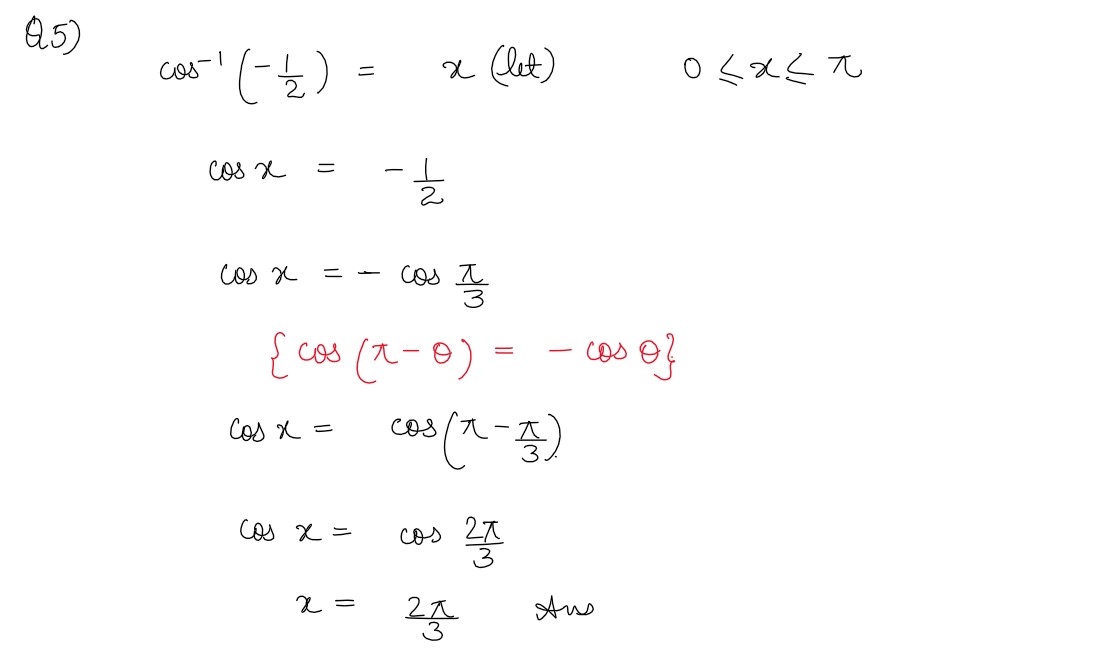 Q5)
cos⁻¹(-1/2) = x (let) 0 ≤ x ≤ π
cos x = -1/2
cos x = - cos π/3
{cos(π - θ) = - cos θ}
cos x = cos(π - π/3)
cos x = cos 2π/3
x = 2π/3 Ans